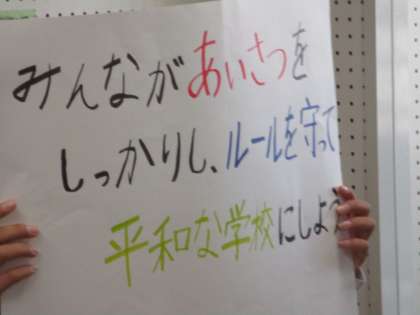 みんながあいさつを
しっかりし、ルールを守って
平和な学校にしよう